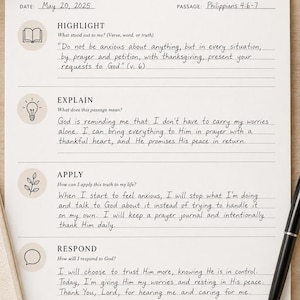 DATE: May 20, 2025 PASSAGE: Philippians 4:6-7
HIGHLIGHT
What stood out to me? (Verse, word, or truth)
"Do not be anxious about anything, but in every situation,
by prayer and petition, with thanksgiving, present your
requests to God." (v. 6)
EXPLAIN
What does this passage mean?
God is reminding me that I don't have to carry my worries
alone. I can bring everything to Him in prayer with a
thankful heart, and He promises His peace in return.
APPLY
How can I apply this truth to my life?
When I start to feel anxious, I will stop what I'm doing
and talk to God about it instead of trying to handle it
on my own. I will keep a prayer journal and intentionally
thank Him daily.
RESPOND
How will I respond to God?
I will choose to trust Him more, knowing He is in control.
Today, I'm giving Him my worries and resting in His peace.
Thank You, Lord, for hearing me and caring for me